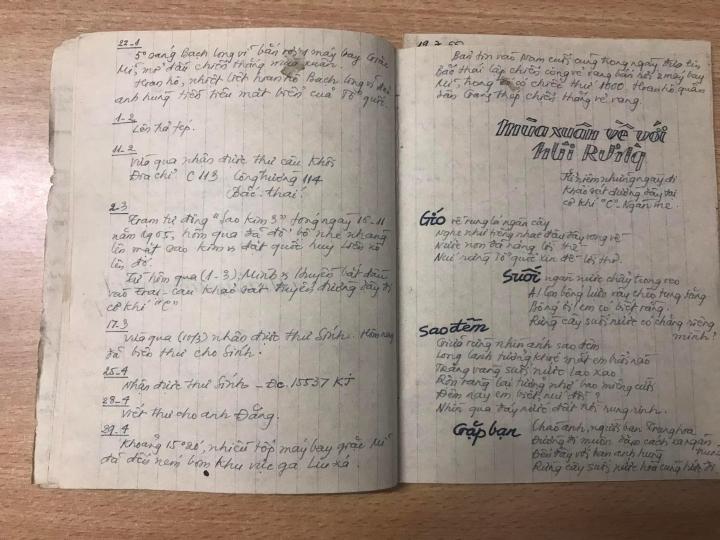 22-1
5° sáng Bạch long vĩ bắn rơi 4 máy bay Giặc
Mĩ, mở đầu chiến thắng mùa xuân.
Hoan hô, nhiệt liệt hoan hô Bạch long vĩ
anh hùng tiền tiêu mặt biển của Tổ quốc.
1-2
Lên hà tép.
11.2
Vừa qua nhận được thư cậu Khôi
Địa chỉ C 113 Công trường 114
Bắc-thái.
2-3
Trạm tự động "Sao Kim 3" phóng ngày 16-11
năm 1965, hôm qua đã đổ bộ nhẹ nhàng
lên mặt sao kim và đặt quốc huy Liên xô
lên đó.
Từ hôm qua (1-3), Minh và Khuyến bắt đầu
vào Trại-cau khảo sát tuyến đường dây tải
cơ khí "C"
17.3
Vừa qua (10/3) nhận được thư Sinh. Hôm nay
đã biên thư cho Sinh.
25-4
Nhận được thư Sinh - Đc. 15537 KJ
28-4
Viết thư cho anh Đằng.
29-4
Khoảng 15°20', nhiều tốp máy bay giặc Mĩ
đã đến ném bom khu vực ga Lưu xá.
Bản tin vào Nam cuối cùng trong ngày đưa tin
bắc thái lập chiến công vẻ vang bắn rơi 2 máy bay
Mĩ, trong có chiếc thứ 1000. Hoan hô quân
dân Trung thép chiến thắng vẻ vang.
Mùa xuân về với
Núi Rừng
Kỉ niệm những ngày đi
khảo sát đường dây tải
cơ khí "C" - Ngàn me.
Gió về rung lá ngàn cây
Nghe như tiếng nhạc đâu đây vọng về
Nước non đã nặng lời thề
Núi rừng Tổ quốc xin để lời thơ.
Suối ngàn nước chảy trong veo
Ai lên bỗng lướt vậy chèo tung tăng
Bỗng ơi em có biết rằng
Rừng cây suối nước có chăng riêng
mình!
Sao đêm
Giữa rừng nhìn ánh sao đêm
Long lanh tưởng ánh mắt em hôm nào
Trăng vàng suối nước lao xao
Rộn ràng lại tưởng nhớ bao miệng cười
Đêm nay em biết, núi đồi?
Nhìn qua đáy nước đất trời rung rinh.
Gặp bạn Chào anh, người bạn Trung hoa
Đường đi muôn dặm cách xa ngàn
trùng
Đến đây với bạn anh hùng
Rừng cây suối nước hoà cùng